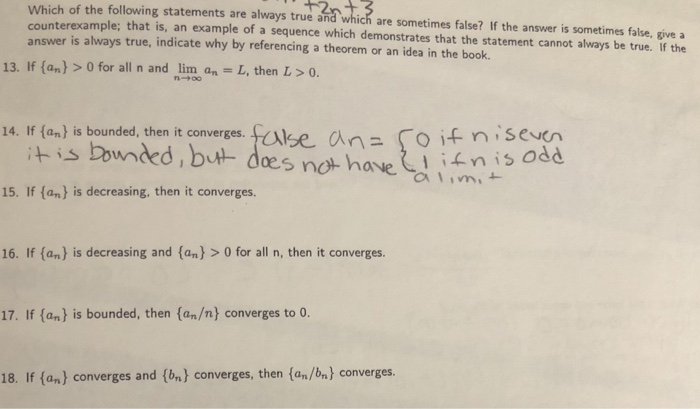 +2n+3
Which of the following statements are always true and which are sometimes false? If the answer is sometimes false, give a
counterexample; that is, an example of a sequence which demonstrates that the statement cannot always be true. If the
answer is always true, indicate why by referencing a theorem or an idea in the book.
13. If {aₙ} > 0 for all n and lim n→∞ aₙ = L, then L > 0.
14. If {aₙ} is bounded, then it converges. false an = { 0 if n is even
it is bounded, but does not have { 1 if n is odd
a limit
15. If {aₙ} is decreasing, then it converges.
16. If {aₙ} is decreasing and {aₙ} > 0 for all n, then it converges.
17. If {aₙ} is bounded, then {aₙ/n} converges to 0.
18. If {aₙ} converges and {bₙ} converges, then {aₙ/bₙ} converges.